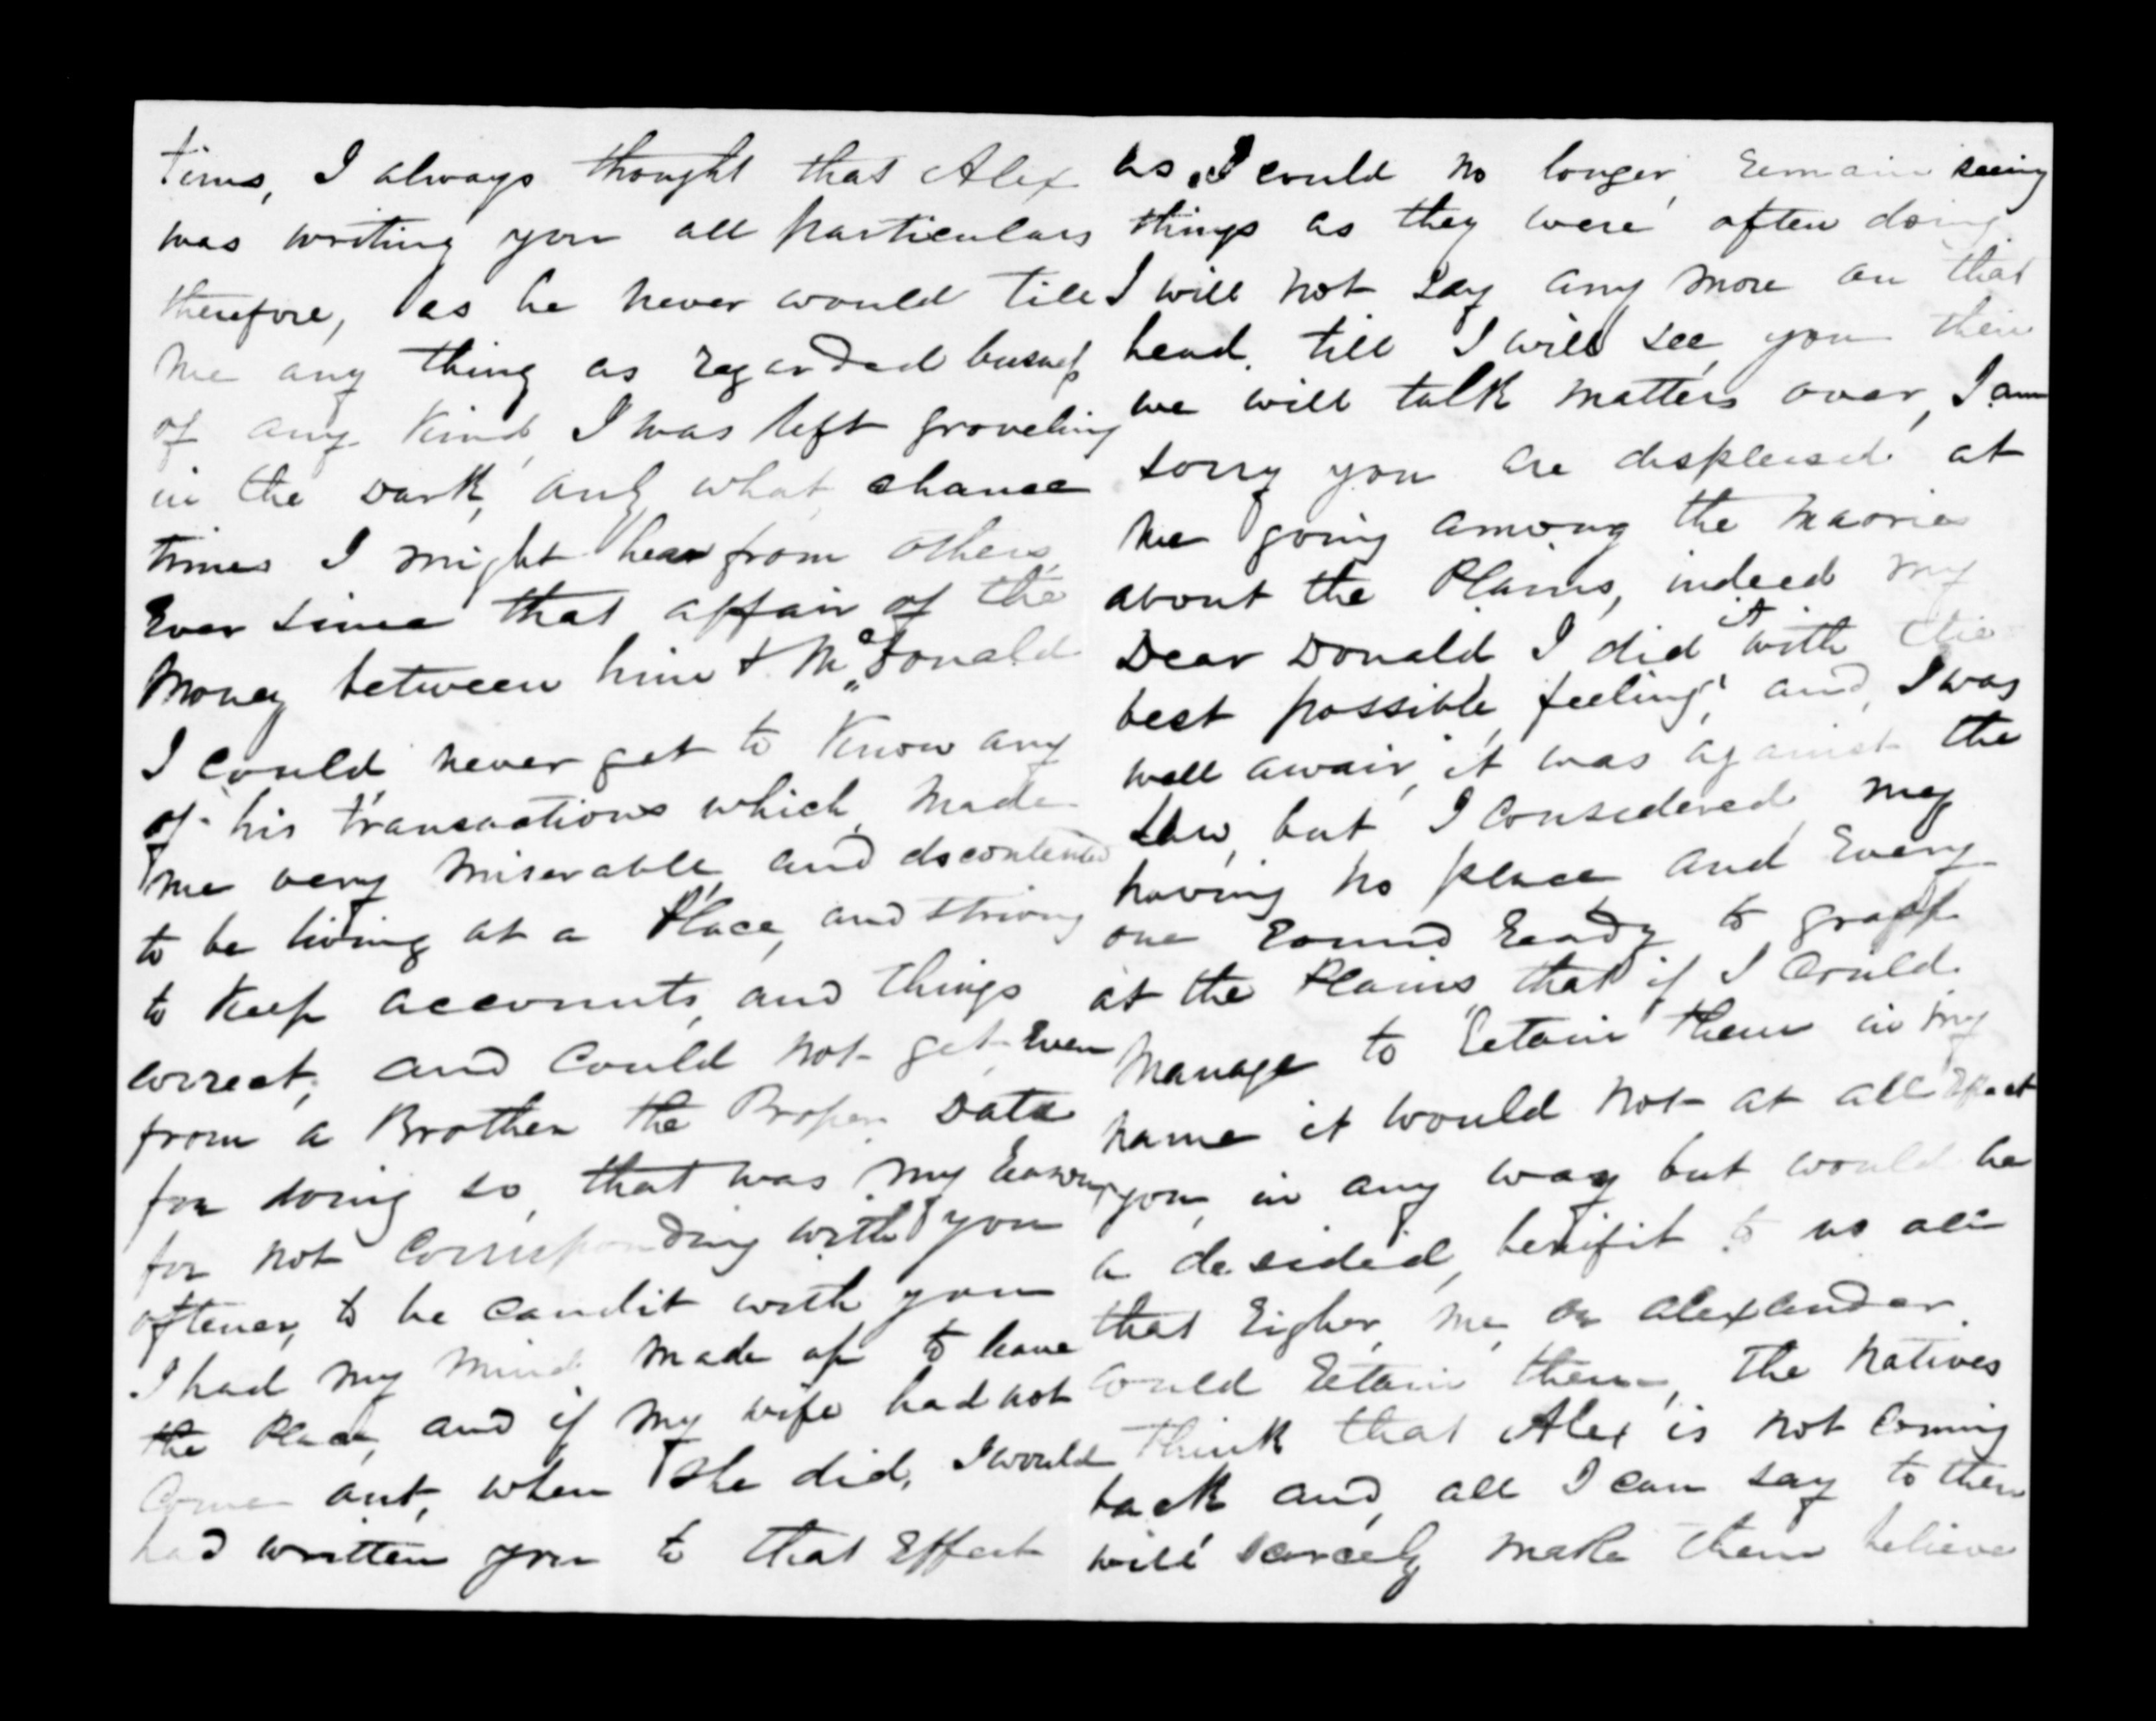 times, I always thought that Alex
was writing you all particulars
therefore, as he never would till
me any thing as regarded busness
of any kind, I was left groveling
in the dark, only what chance
times I might hear from others,
Ever since that affair of the
Money between him & McDonald
I could never get to know any
of his transactions which, made
me very miserable and discontented
to be living at a Place, and striving
to keep accounts, and things
correct, and could not get Even
from a Brother the Proper data
for doing so, that was my reason
for not corresponding with you
oftener, to be candit with you
I had my mind made up to leave
the Place, and if my wife had not
come out, when she did, I would
had written you to that Effect
as I could no longer, remain seeing
things as they were often doing
I will not say any more on that
head, till I will see, you then
we will talk matters over, I am
sorry you are displeised at
me going among the maories
about the Plains, indeed my
Dear Donald I did it with the
best possible, feeling, and, I was
well awair, it was against the
Law, but, I considered, my
having no place and Every
one round ready to grasp
at the Plains, that if I could
manage to retain them in my
name it would not at all Effect
you, in any way but would be
a desided, benifit to us all
that Eigher, me, or Alexander
could retain them, The Natives
think that Alex is not coming
back and, all I can say to them
will scarcely make them believe